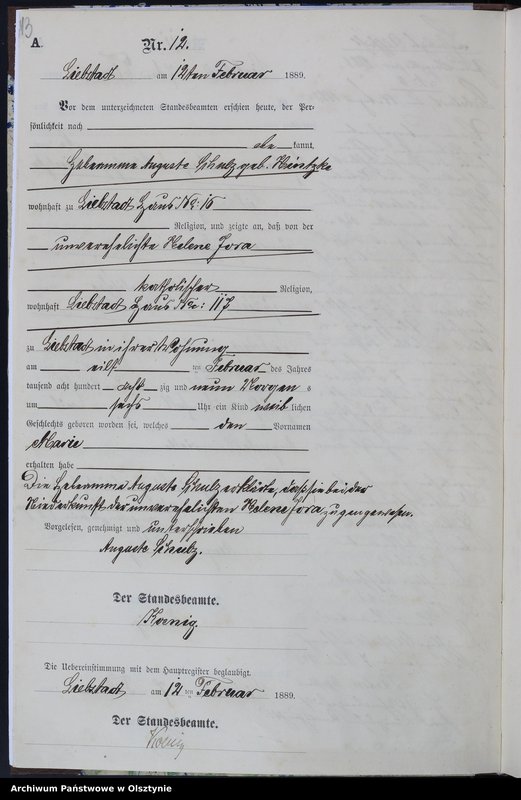 13
A.
Nr. 12.
Liebstadt am 12ten Februar 1889.
Vor dem unterzeichneten Standesbeamten erschien heute, der Per-
sönlichkeit nach
be kannt,
Hebeamme Auguste Schulz geb.
wohnhaft zu Liebstadt Haus No: 16
Religion, und zeigte an, daß von der
unverehelichte Helene Jora
katholischer Religion,
wohnhaft Liebstadt Haus No: 117
zu Liebstadt in ihrer Wohnung
am elf ten Februar des Jahres
tausend acht hundert acht zig und neun Morgen s
um sechs Uhr ein Kind weib lichen
Geschlechts geboren worden sei, welches den Vornamen
Marie
erhalten habe
Die Hebeamme Auguste Schulz erklärte, daß sie bei der
Niederkunft der unverehelichten Helene Jora zugegen gewesen.
Vorgelesen, genehmigt und unterschrieben
Auguste Schulz.
Der Standesbeamte.
Koenig.
Die Uebereinstimmung mit dem Hauptregister beglaubigt.
Liebstadt am 12 ten Februar 1889.
Der Standesbeamte.
Koenig
Archiwum Państwowe w Olsztynie